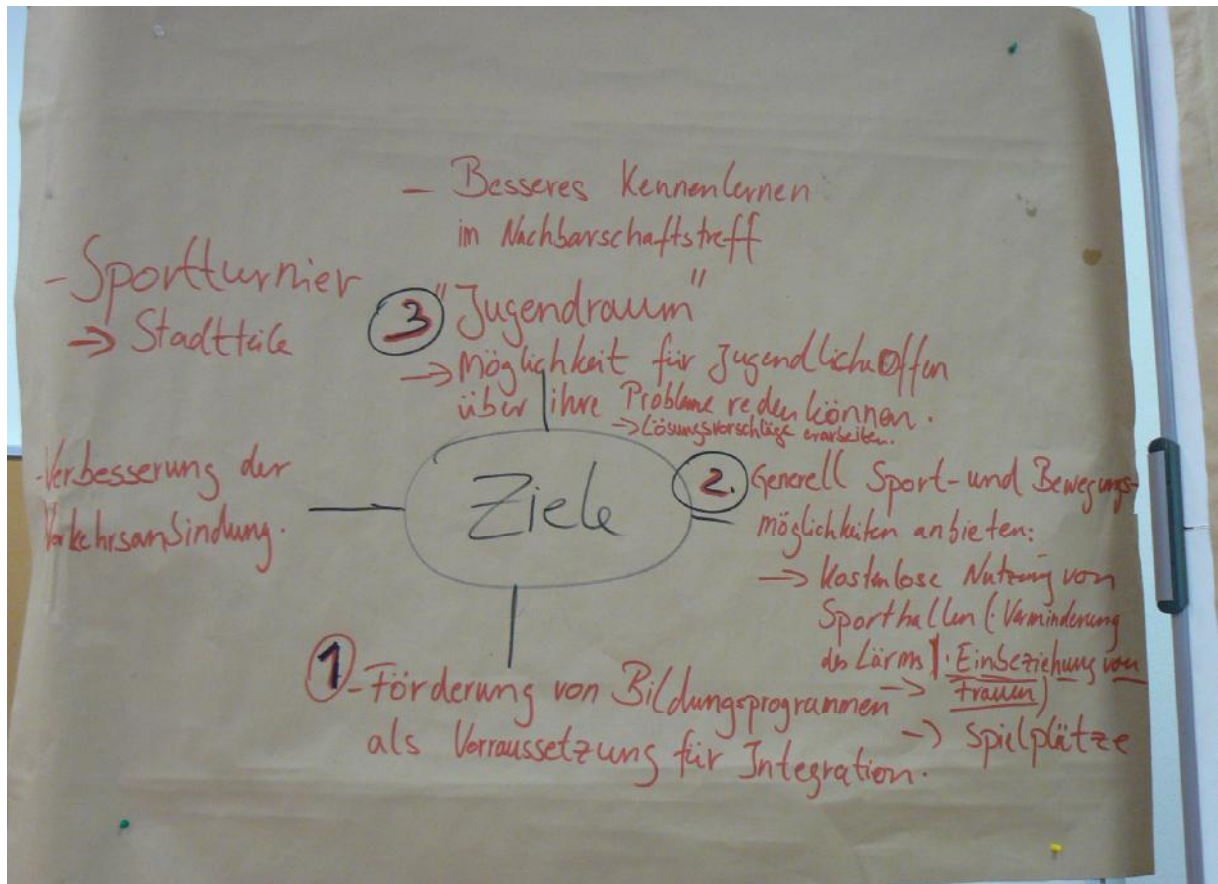 - Besseres Kennenlernen
im Nachbarschaftstreff
- Sportturnier
→ Stadtteile
3 "Jugendraum"
→ Möglichkeit für Jugendliche Offen
über ihre Probleme reden können.
→ Lösungsvorschläge erarbeiten.
- Verbesserung der
Verkehrsanbindung.
Ziele
2. Generell Sport- und Bewegungs-
möglichkeiten anbieten:
→ Kostenlose Nutzung von
Sporthallen (· Verminderung
des Lärms | · Einbeziehung von
→ Frauen)
→ Spielplätze
1 - Förderung von Bildungsprogrammen
als Vorraussetzung für Integration.